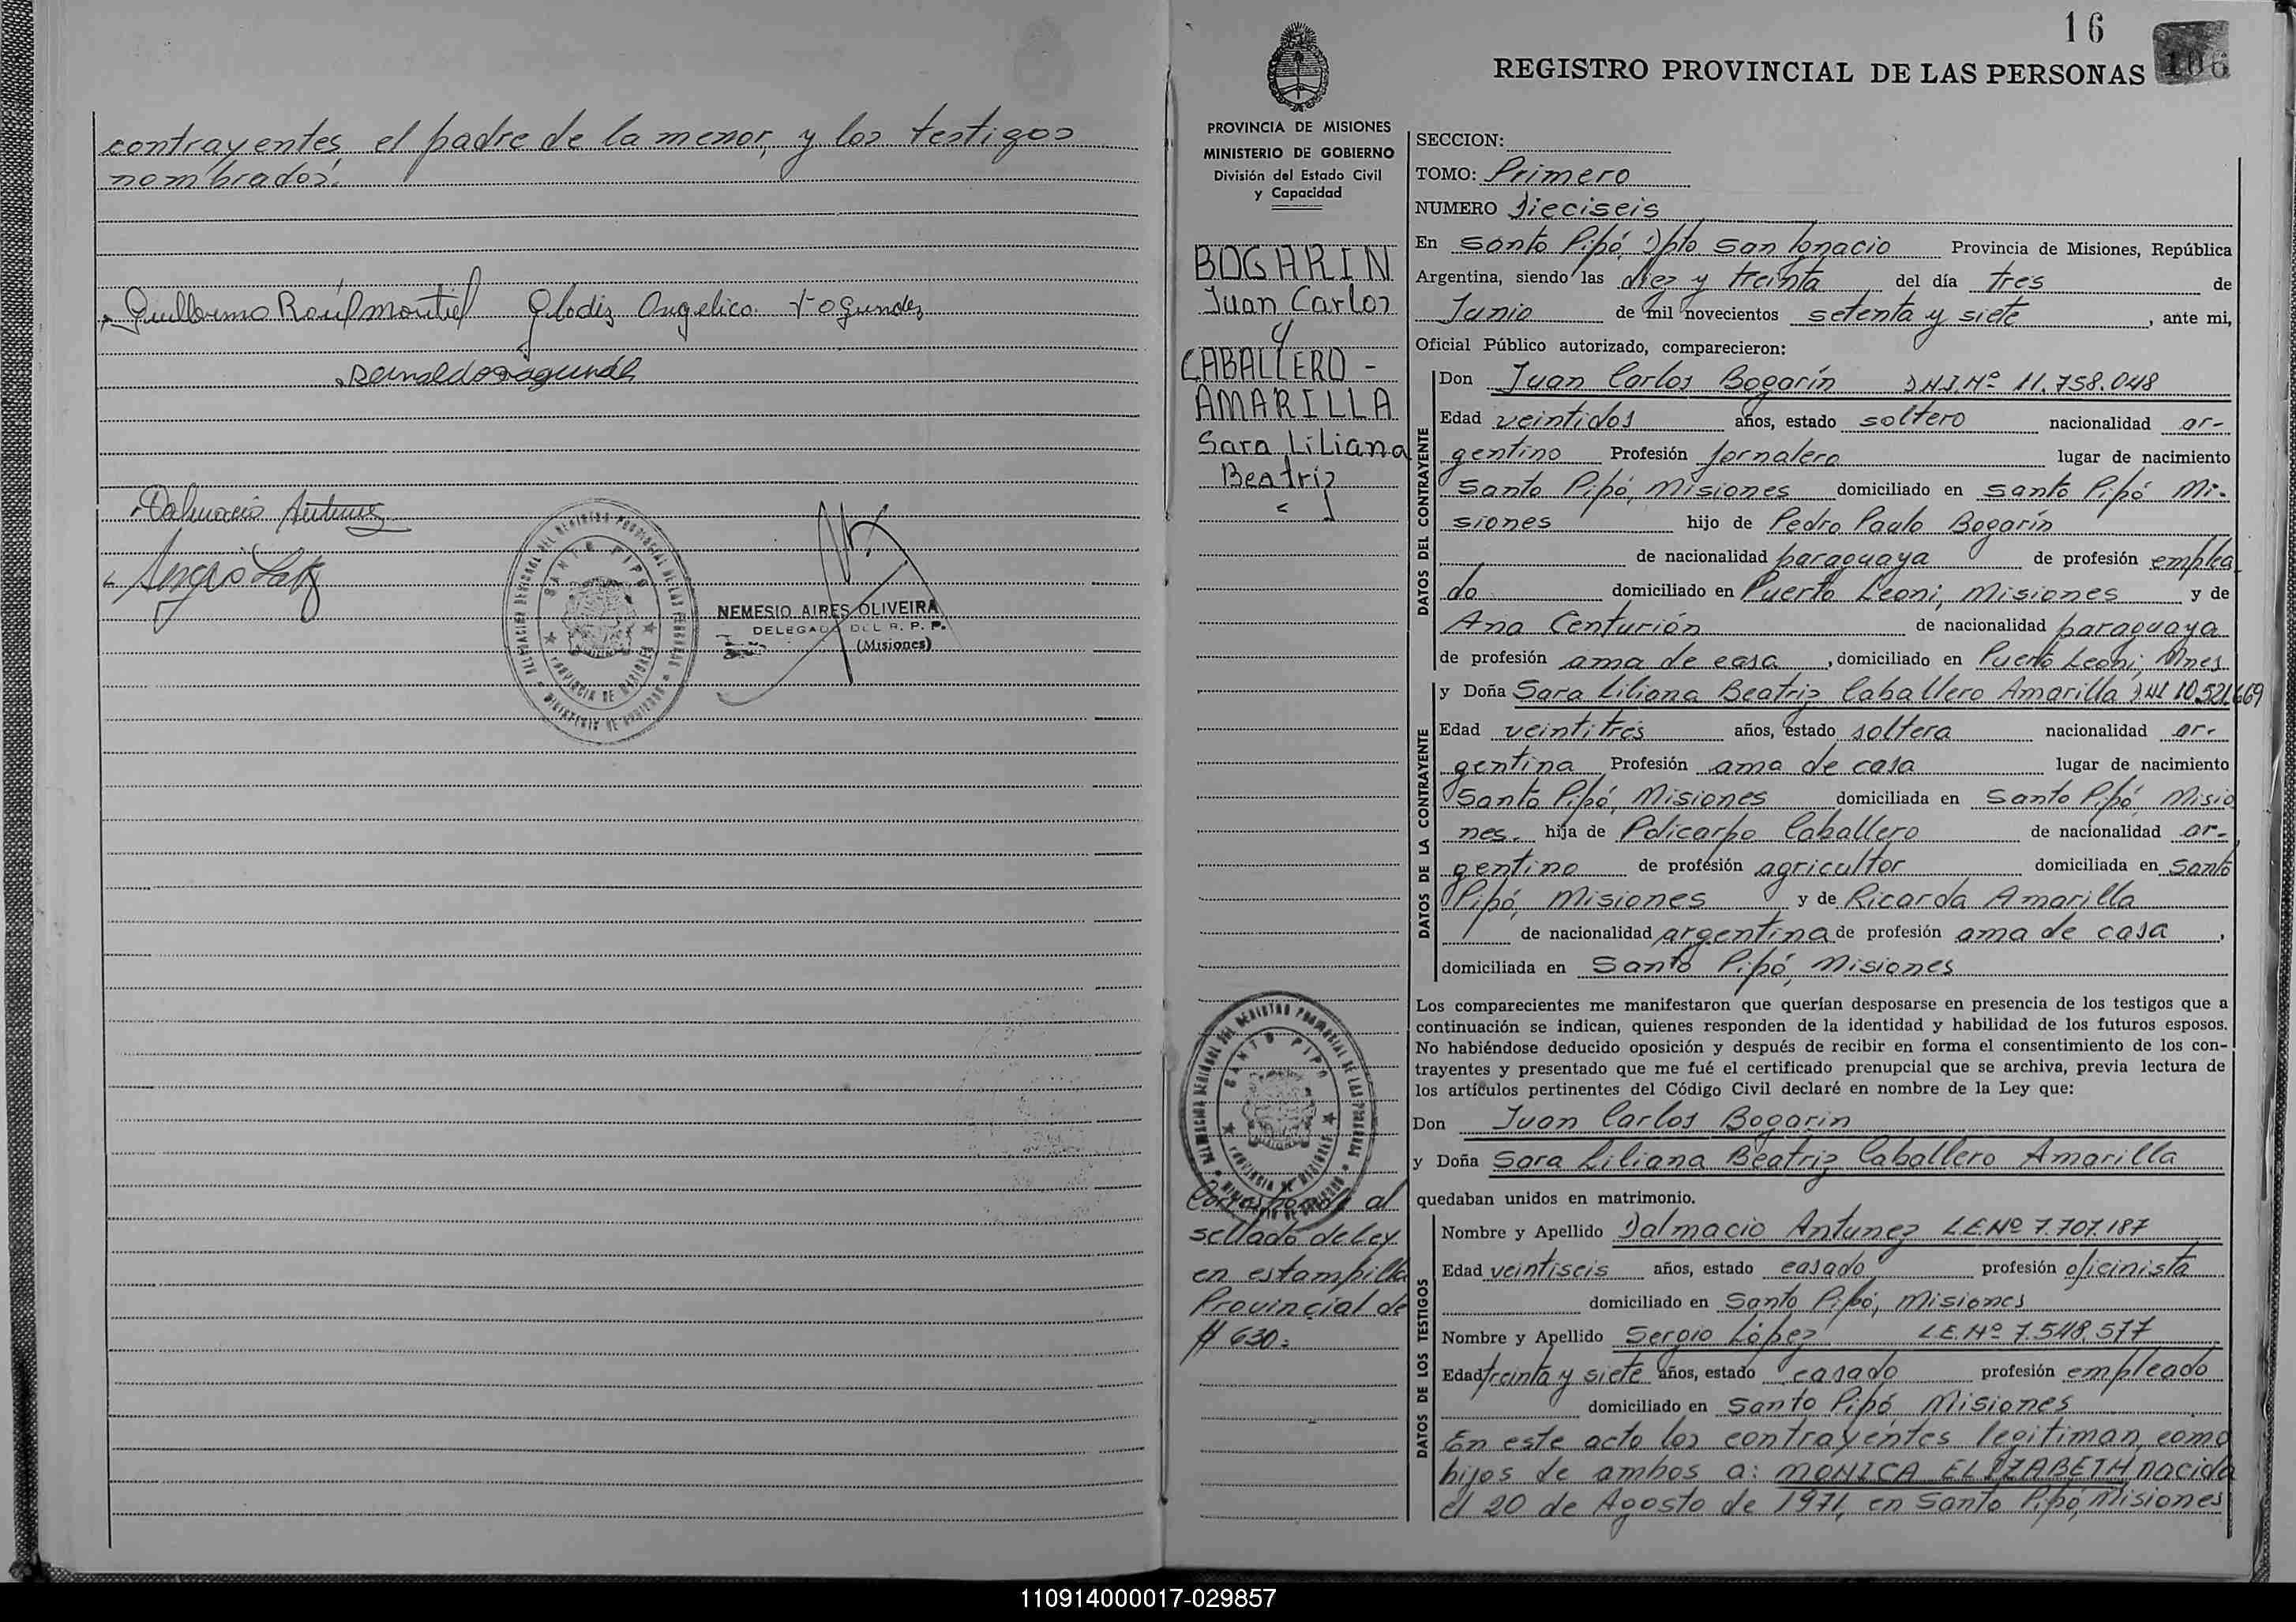 contrayentes, el padre de la menor, y los testigos
nombrados.
Guillermo Raúl Montiel
Dalmacio Antunez
NEMESIO AIRES OLIVEIRA
DELEGADO DEL R. P. P.
(Misiones)
SANTO PIPO
16
106
REGISTRO PROVINCIAL DE LAS PERSONAS
PROVINCIA DE MISIONES
MINISTERIO DE GOBIERNO
División del Estado Civil
y Capacidad
BOGARIN
Juan Carlos
y
CABALLERO -
AMARILLA
Sara Liliana
Beatriz
SANTO PIPO
Corresponde al
sellado de Ley
en estampilla
Provincial de
$ 630=
SECCION:
TOMO: Primero
NUMERO Dieciseis
En Santo Pipó, Dpto San Ignacio Provincia de Misiones, República
Argentina, siendo las diez y treinta del día tres de
Junio de mil novecientos setenta y siete, ante mi,
Oficial Público autorizado, comparecieron:
DATOS DEL CONTRAYENTE
Don Juan Carlos Bogarín D.N.I.Nº 11.758.048
Edad veintidos años, estado soltero nacionalidad ar-
gentino Profesión Jornalero lugar de nacimiento
Santo Pipó, Misiones domiciliado en Santo Pipó Mi-
siones hijo de Pedro Paulo Bogarín
de nacionalidad paraguaya de profesión emplea
do domiciliado en Puerto Leoni, Misiones y de
Ana Centurión de nacionalidad paraguaya
de profesión ama de casa, domiciliado en Puerto Leoni, Mnes.
DATOS DE LA CONTRAYENTE
y Doña Sara Liliana Beatriz Caballero Amarilla DNI 10.521.669
Edad veintitrés años, estado soltera nacionalidad ar-
gentina Profesión ama de casa lugar de nacimiento
Santo Pipó, Misiones domiciliada en Santo Pipó, Misio
nes. hija de Policarpo Caballero de nacionalidad ar-
gentino de profesión agricultor domiciliada en Santo
Pipó, Misiones y de Ricarda Amarilla
de nacionalidad argentina de profesión ama de casa,
domiciliada en Santo Pipó, Misiones
Los comparecientes me manifestaron que querían desposarse en presencia de los testigos que a
continuación se indican, quienes responden de la identidad y habilidad de los futuros esposos.
No habiéndose deducido oposición y después de recibir en forma el consentimiento de los con-
trayentes y presentado que me fué el certificado prenupcial que se archiva, previa lectura de
los artículos pertinentes del Código Civil declaré en nombre de la Ley que:
Don Juan Carlos Bogarin
y Doña Sara Liliana Beatriz Caballero Amarilla
quedaban unidos en matrimonio.
DATOS DE LOS TESTIGOS
Nombre y Apellido Dalmacio Antunez L.E.Nº 7.707.187
Edad veintiseis años, estado casado profesión oficinista
domiciliado en Santo Pipó, Misiones
Nombre y Apellido Sergio López L.E.Nº 7.548.577
Edad treinta y siete años, estado casado profesión empleado
domiciliado en Santo Pipó Misiones
En este acto los contrayentes legitiman como
hijos de ambos a: MONICA ELIZABETH nacida
el 20 de Agosto de 1971, en Santo Pipó, Misiones
110914000017-029857